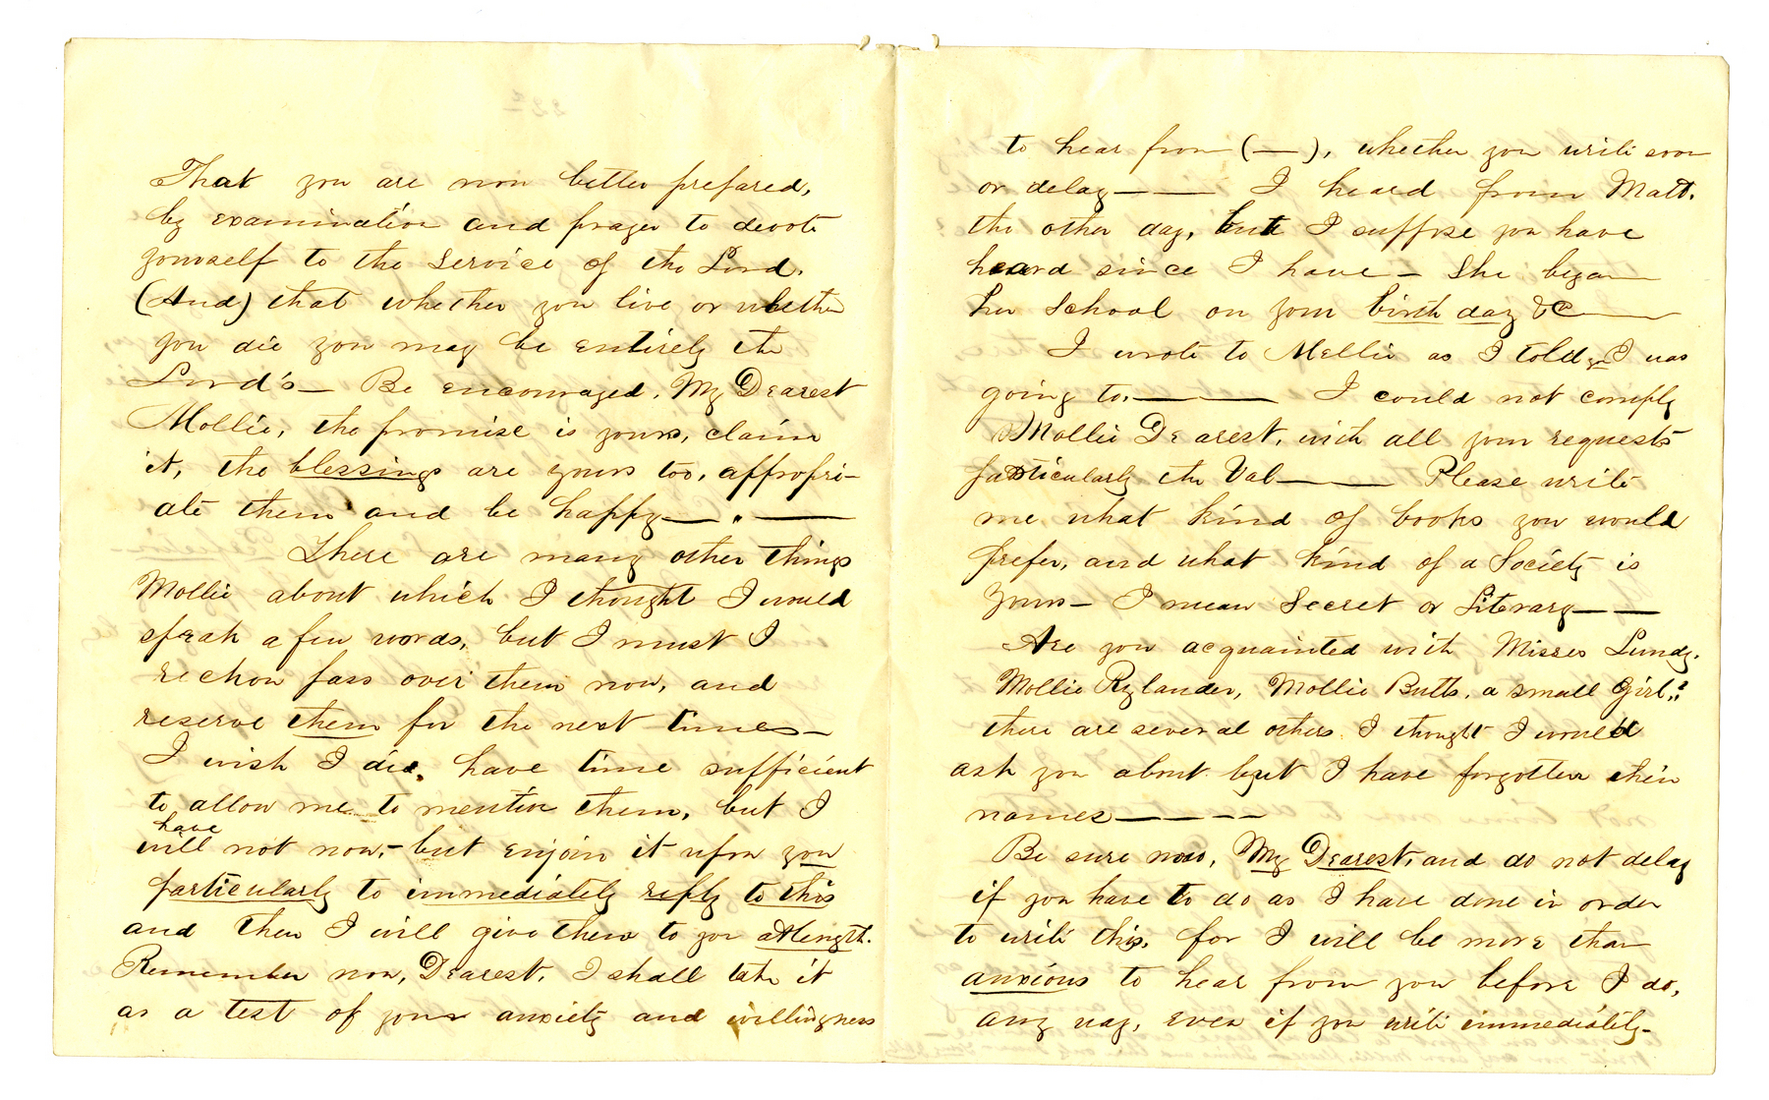 That you are now better prepared,
by examination and prayer to devote
yourself to the service of the Lord.
(And) that whether you live or whether
you die you may be entirely the
Lord's — Be encouraged, My Dearest
Mollie, the promise is yours, claim
it, the blessings are yours too, appropri-
ate them and be happy — . —
There are many other things
Mollie about which I thought I would
speak a few words, but I must I
reckon pass over them now, and
reserve them for the next time —
I wish I did, have time sufficient
to allow me to mention them, but I
have
will not now, - but enjoin it upon you
particularly to immediately reply to this
and then I will give them to you at length.
Remember now, Dearest, I shall take it
as a test of your anxiety and willingness
to hear from ( — ), whether you write soon
or delay — — I heard from Matt.
the other day, but I suppose you have
heard since I have — She began
her School on your birth day &c —
I wrote to Mellie as I told y I was
going to. — — I could not comply
Mollie Dearest, with all your requests
particularly the Val — — Please write
me what kind of books you would
prefer, and what kind of a Society is
yours — I mean Secret or Literary — —
Are you acquainted with Misses Lundy,
Mollie Rylander, Mollie Butts, a small Girl,?
there are several others I thought I would
ask you about but I have forgotten their
names — — — —
Be sure now, My Dearest, and do not delay
if you have to do as I have done in order
to write this, for I will be more than
anxious to hear from you before I do,
any way, even if you write immediately -